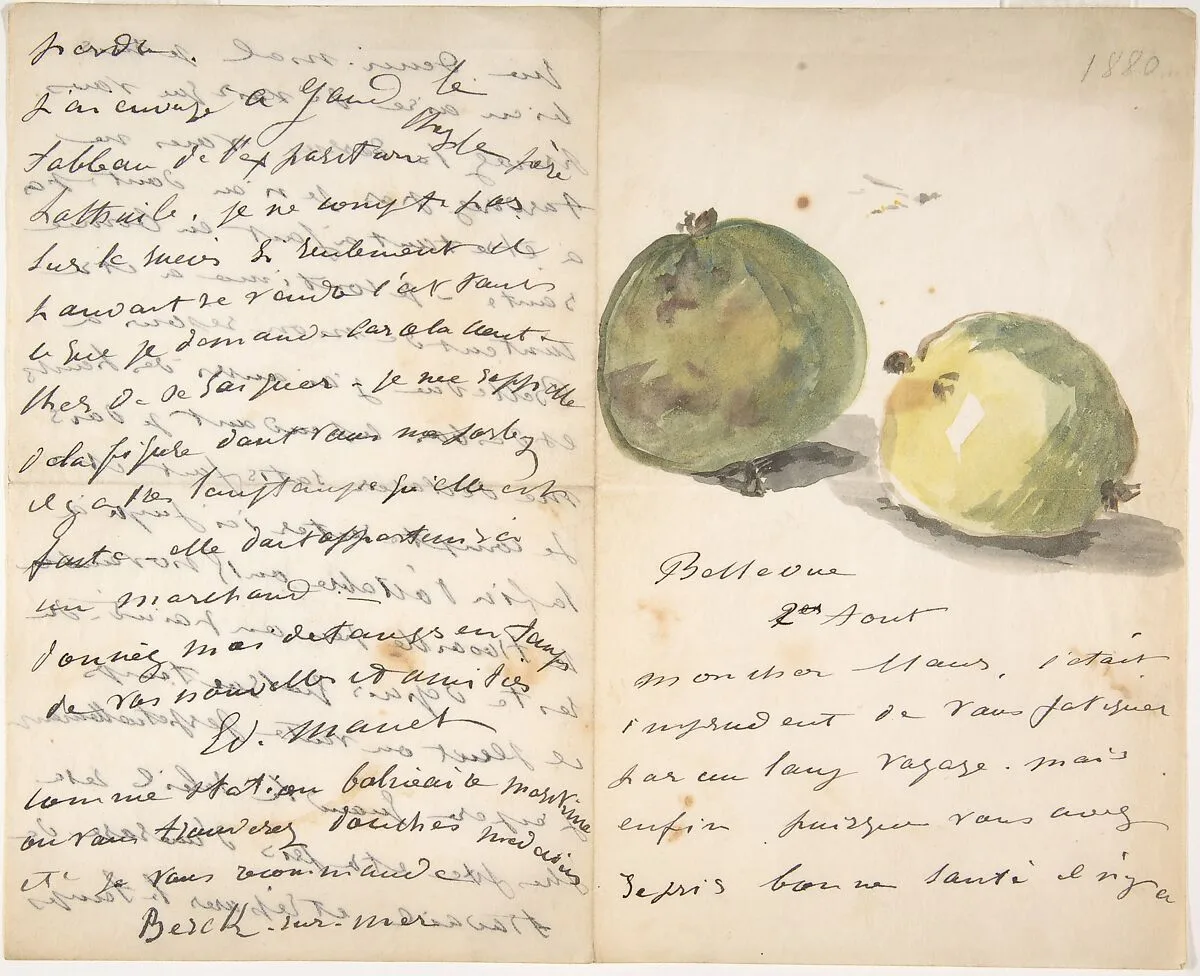 perdu.
J'ai envoyé a Gand le
tableau de l'exposition chez le père
Lathuile. je ne compte pas
sur le succès si seulement il
pouvait se vendre c'est tout
ce que je demande car cela coute
cher de se soigner - je me rappelle
de la figure dont vous me parlez
il y a très longtemps qu'elle est
faite - elle doit appartenir à
un marchand -
donnez moi de tamps en tamps
de vos nouvelles et amitiés
Ed. Manet
comme station balnéaire maritime
ou vous trouverez douches medecins
etc je vous recommande
Berck-sur-mer
1880
Bellevue
2 Aout
mon cher Maus, c'était
imprudent de vous fatiguer
par un long voyage. mais
enfin puisque vous avez
repris bonne santé il n'y a